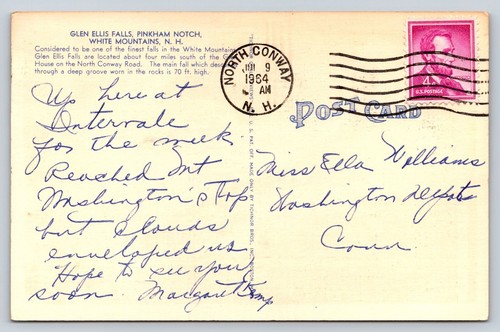 GLEN ELLIS FALLS, PINKHAM NOTCH,
WHITE MOUNTAINS, N. H.
Considered to be one of the finest falls in the White Mountains
Glen Ellis Falls are located about four miles south of the G
House on the North Conway Road. The main fall which desc
through a deep groove worn in the rocks is 70 ft. high.
Up here at
Intervale
for the week
Reached Mt
Washington's top
but clouds
enveloped us
Hope to see you
soon. Margaret Kemp
NORTH CONWAY
9
1964
AM
N. H.
4¢
U.S. POSTAGE
POST CARD
Miss Ella Williams
Washington Depot
Conn.